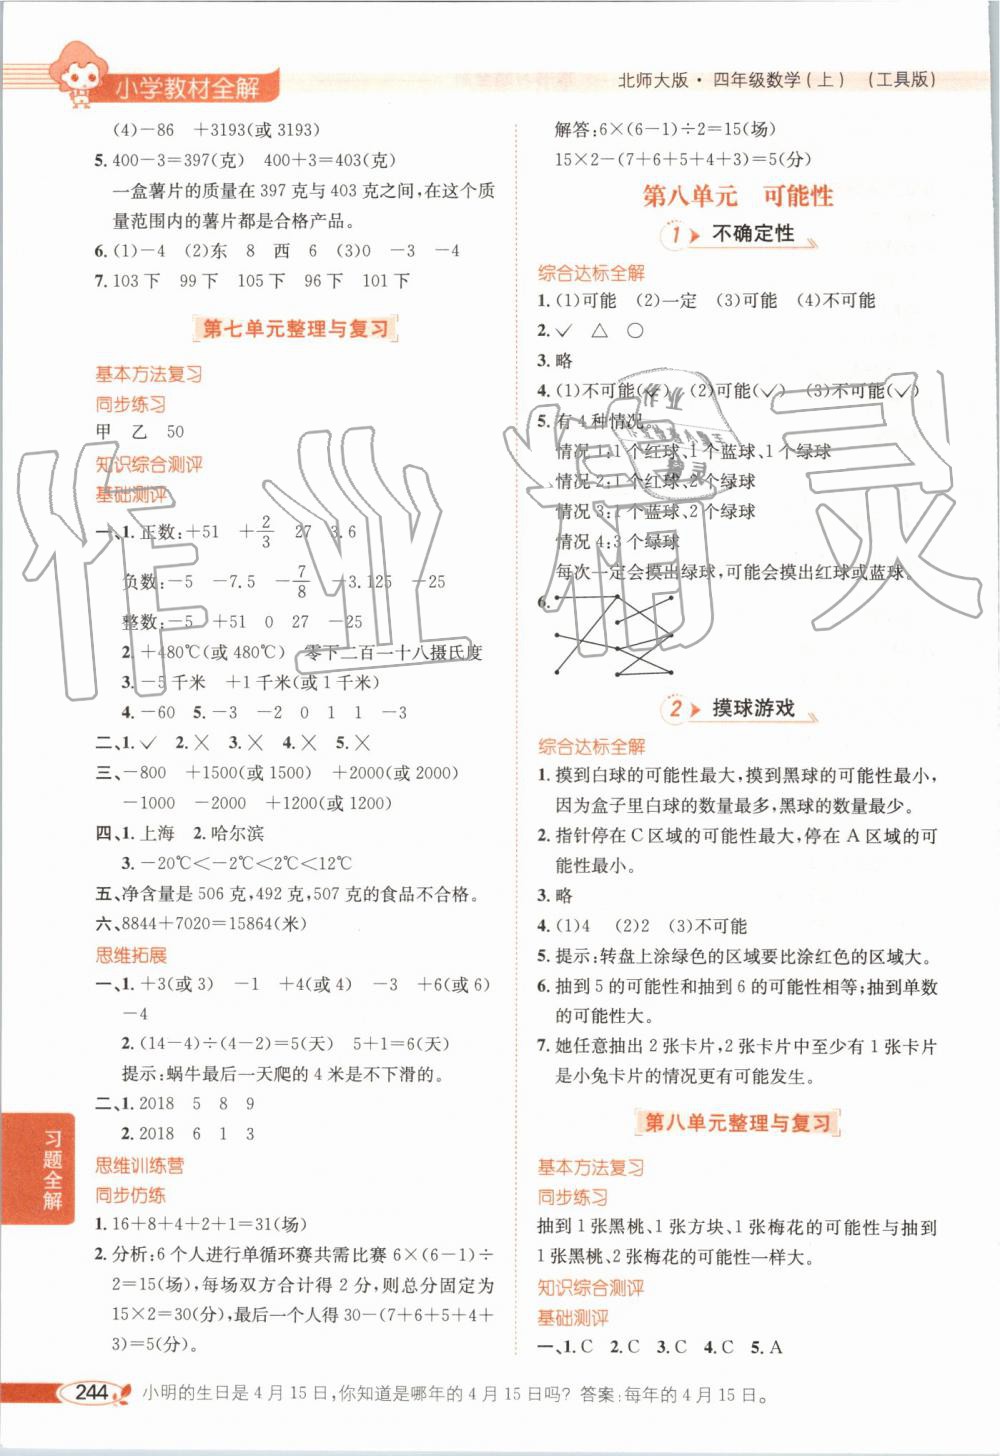 小学教材全解
北师大版·四年级数学(上) (工具版)
(4)－86　＋3193(或 3193)
5. 400－3＝397(克)　400＋3＝403(克)
一盒薯片的质量在 397 克与 403 克之间,在这个质
量范围内的薯片都是合格产品。
6. (1)－4　(2)东　8　西　6　(3)0　－3　－4
7. 103 下　99 下　105 下　96 下　101 下
第七单元整理与复习
基本方法复习
同步练习
甲　乙　50
知识综合测评
基础测评
一、1. 正数:＋51　＋2/3　27　3.6
负数:－5　－7.5　－7/8　－3.125　－25
整数:－5　＋51　0　27　－25
2. ＋480℃(或 480℃)　零下二百一十八摄氏度
3. －5 千米　＋1 千米(或 1 千米)
4. －60　5. －3　－2　0　1　1　－3
二、1. ✓　2. ✕　3. ✕　4. ✕　5. ✕
三、－800　＋1500(或 1500)　＋2000(或 2000)
－1000　－2000　＋1200(或 1200)
四、1. 上海　2. 哈尔滨
3. －20℃＜－2℃＜2℃＜12℃
五、净含量是 506 克,492 克,507 克的食品不合格。
六、8844＋7020＝15864(米)
思维拓展
一、1. ＋3(或 3)　－1　＋4(或 4)　－3　＋6(或 6)
－4
2. (14－4)÷(4－2)＝5(天)　5＋1＝6(天)
提示:蜗牛最后一天爬的 4 米是不下滑的。
二、1. 2018　5　8　9
2. 2018　6　1　3
思维训练营
同步仿练
1. 16＋8＋4＋2＋1＝31(场)
2. 分析:6 个人进行单循环赛共需比赛 6×(6－1)÷
2＝15(场),每场双方合计得 2 分,则总分固定为
15×2＝30(分),最后一个人得 30－(7＋6＋5＋4＋
3)＝5(分)。
解答:6×(6－1)÷2＝15(场)
15×2－(7＋6＋5＋4＋3)＝5(分)
第八单元　可能性
1 不确定性
综合达标全解
1. (1)可能　(2)一定　(3)可能　(4)不可能
2. ✓　△　○
3. 略
4. (1)不可能(✓)　(2)可能(✓)　(3)不可能(✓)
5. 有 4 种情况。
情况 1:1 个红球、1 个蓝球、1 个绿球
情况 2:1 个红球、2 个绿球
情况 3:1 个蓝球、2 个绿球
情况 4:3 个绿球
每次一定会摸出绿球,可能会摸出红球或蓝球。
6.
2 摸球游戏
综合达标全解
1. 摸到白球的可能性最大,摸到黑球的可能性最小,
因为盒子里白球的数量最多,黑球的数量最少。
2. 指针停在 C 区域的可能性最大,停在 A 区域的可
能性最小。
3. 略
4. (1)4　(2)2　(3)不可能
5. 提示:转盘上涂绿色的区域要比涂红色的区域大。
6. 抽到 5 的可能性和抽到 6 的可能性相等;抽到单数
的可能性大。
7. 她任意抽出 2 张卡片,2 张卡片中至少有 1 张卡片
是小兔卡片的情况更有可能发生。
第八单元整理与复习
基本方法复习
同步练习
抽到 1 张黑桃、1 张方块、1 张梅花的可能性与抽到
1 张黑桃、2 张梅花的可能性一样大。
知识综合测评
基础测评
一、1. C　2. C　3. C　4. C　5. A
习题全解
244 小明的生日是 4 月 15 日,你知道是哪年的 4 月 15 日吗? 答案:每年的 4 月 15 日。
作业精灵